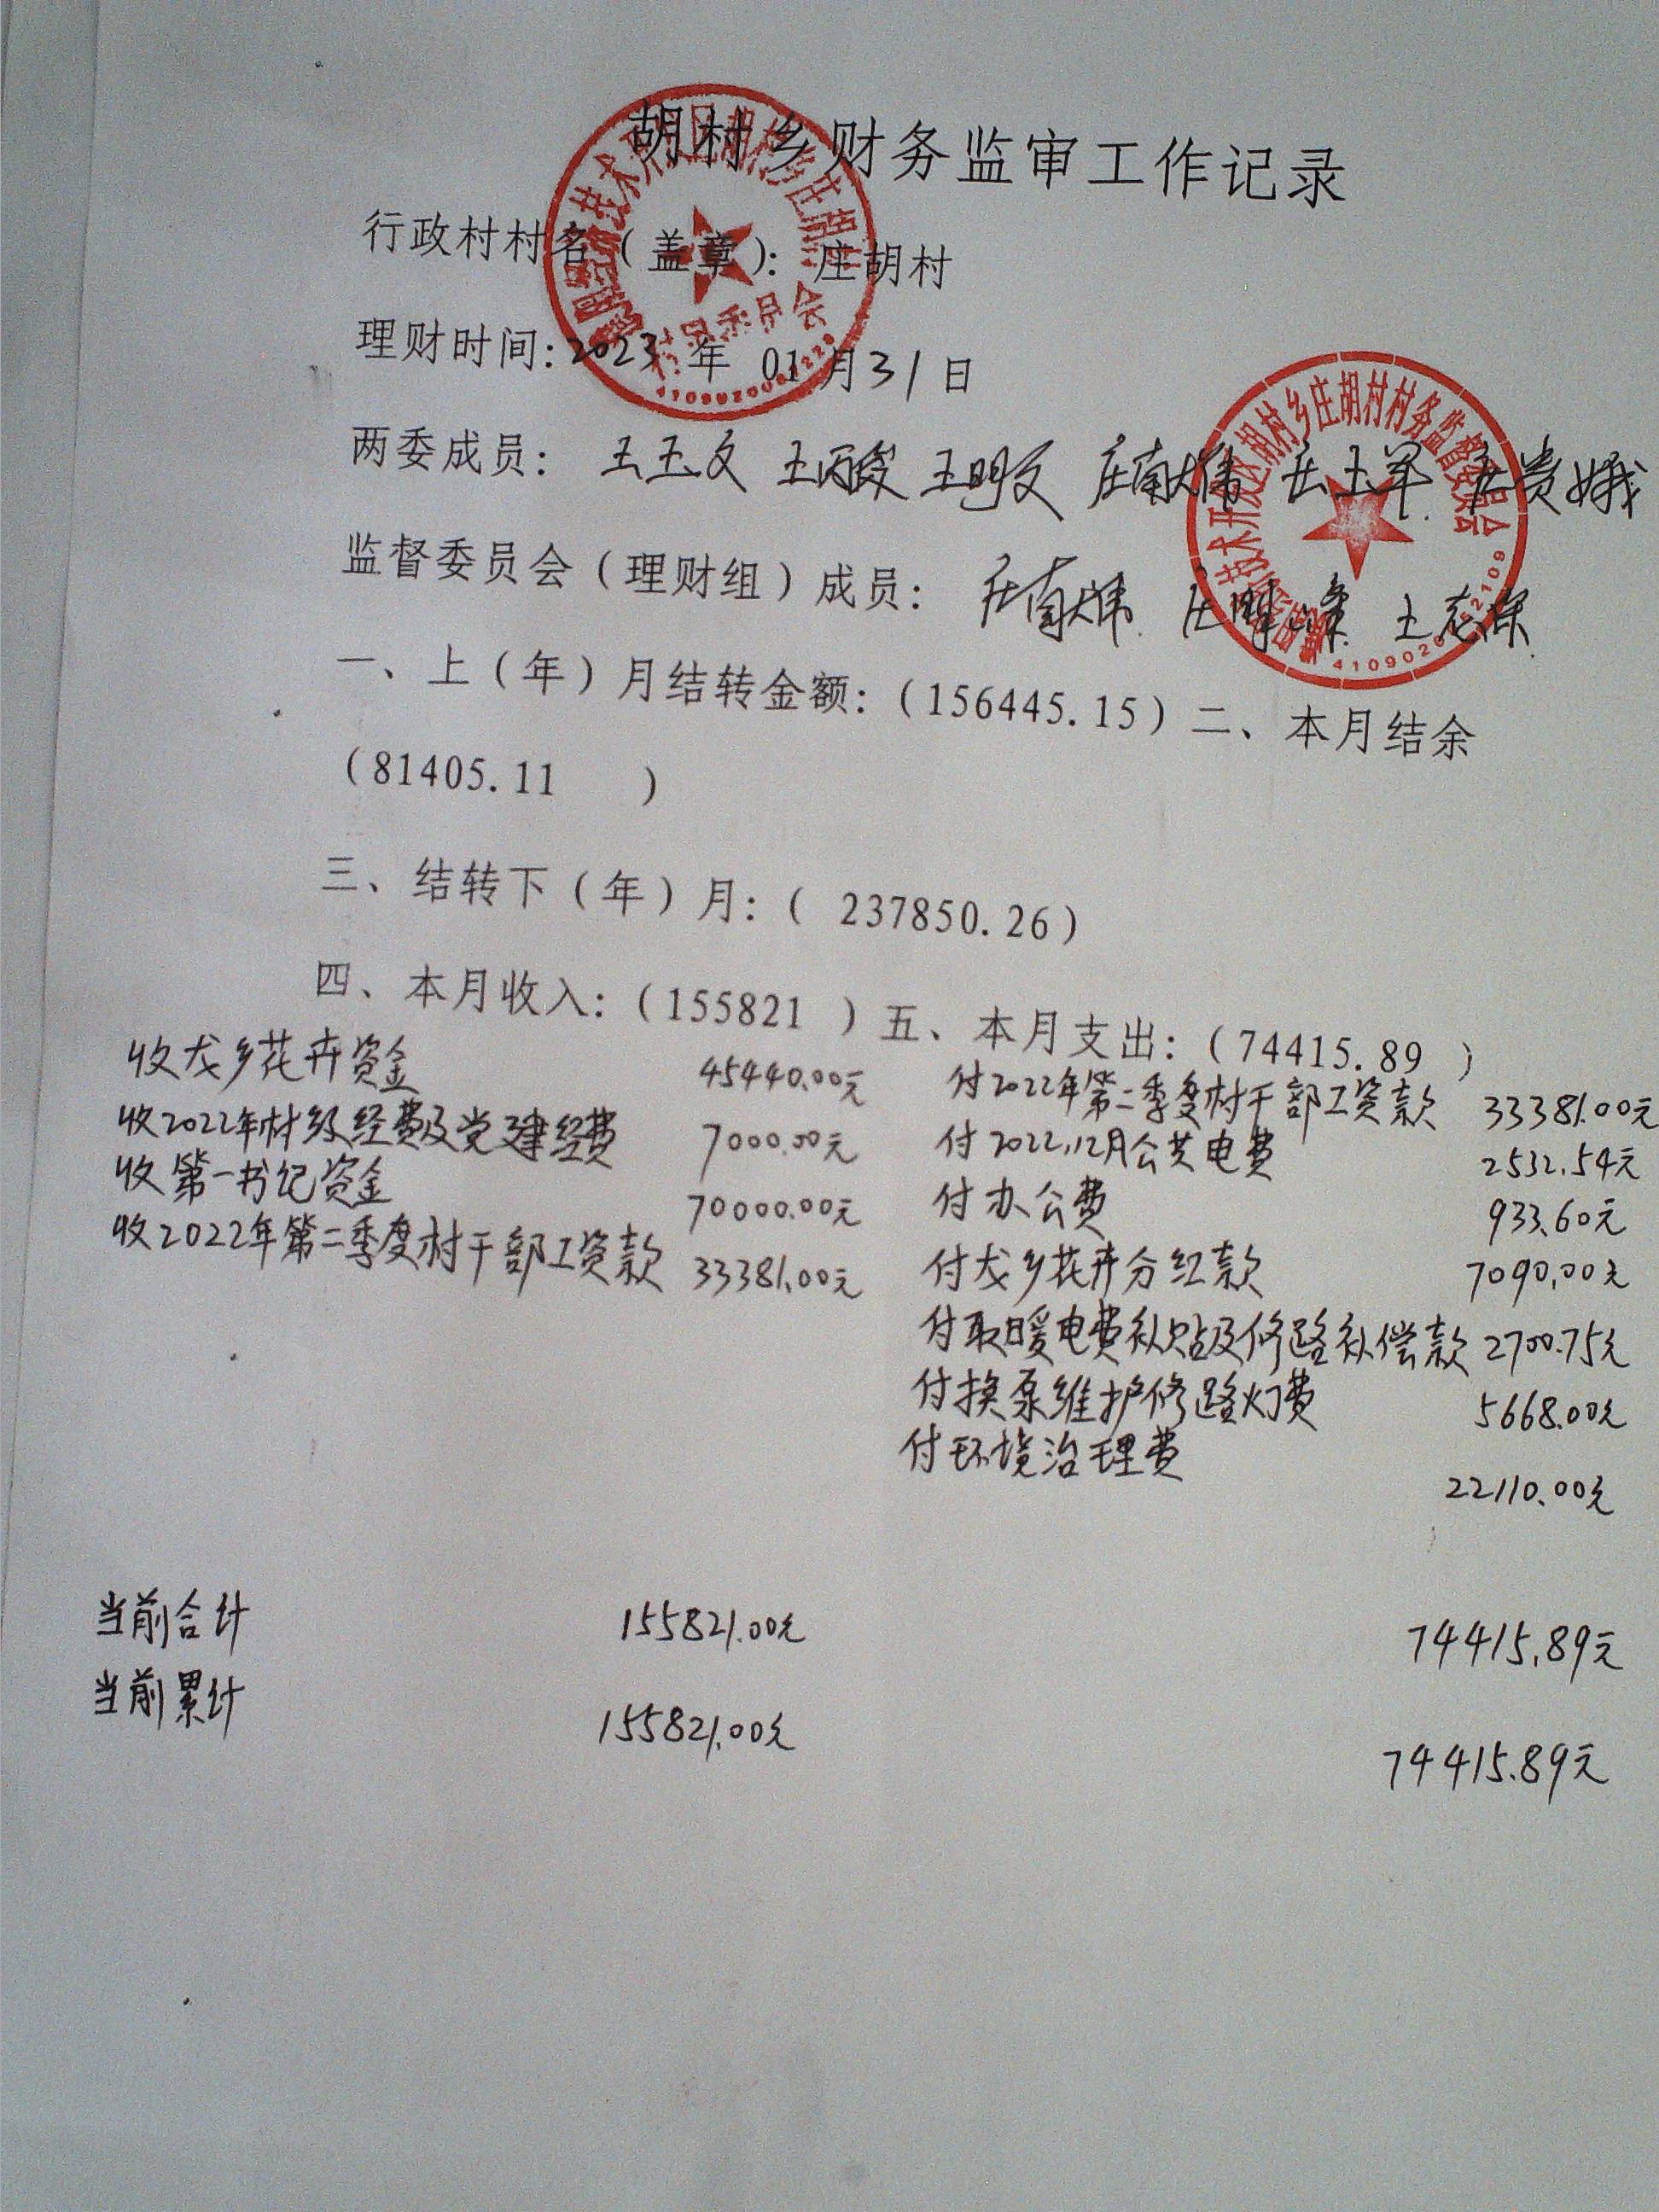 胡村乡财务监审工作记录
行政村村名（盖章）：庄胡村
理财时间：2023年 01月31日
两委成员： 王玉文 王丙俊 王明文 庄献伟 庄贵娥
监督委员会（理财组）成员： 庄献伟 王志保
一、上（年）月结转金额：（156445.15）二、本月结余
（81405.11 ）
三、结转下（年）月：（ 237850.26）
四、本月收入：（155821 ）五、本月支出：（74415.89 ）
收戊乡花卉资金 45440.00元 付2022年第二季度村干部工资款 33381.00元
收2022年村级经费及党建经费 7000.00元 付2022.12月公共电费 2532.54元
收第一书记资金 70000.00元 付办公费 933.60元
收2022年第二季度村干部工资款 33381.00元 付戊乡花卉分红款 7090.00元
付取暖电费补贴及修路补偿款 2700.75元
付换泵维护修路灯费 5668.00元
付环境治理费 22110.00元
当前合计 155821.00元 74415.89元
当前累计 155821.00元 74415.89元
胡村乡庄胡村村务监督委员会
村民委员会